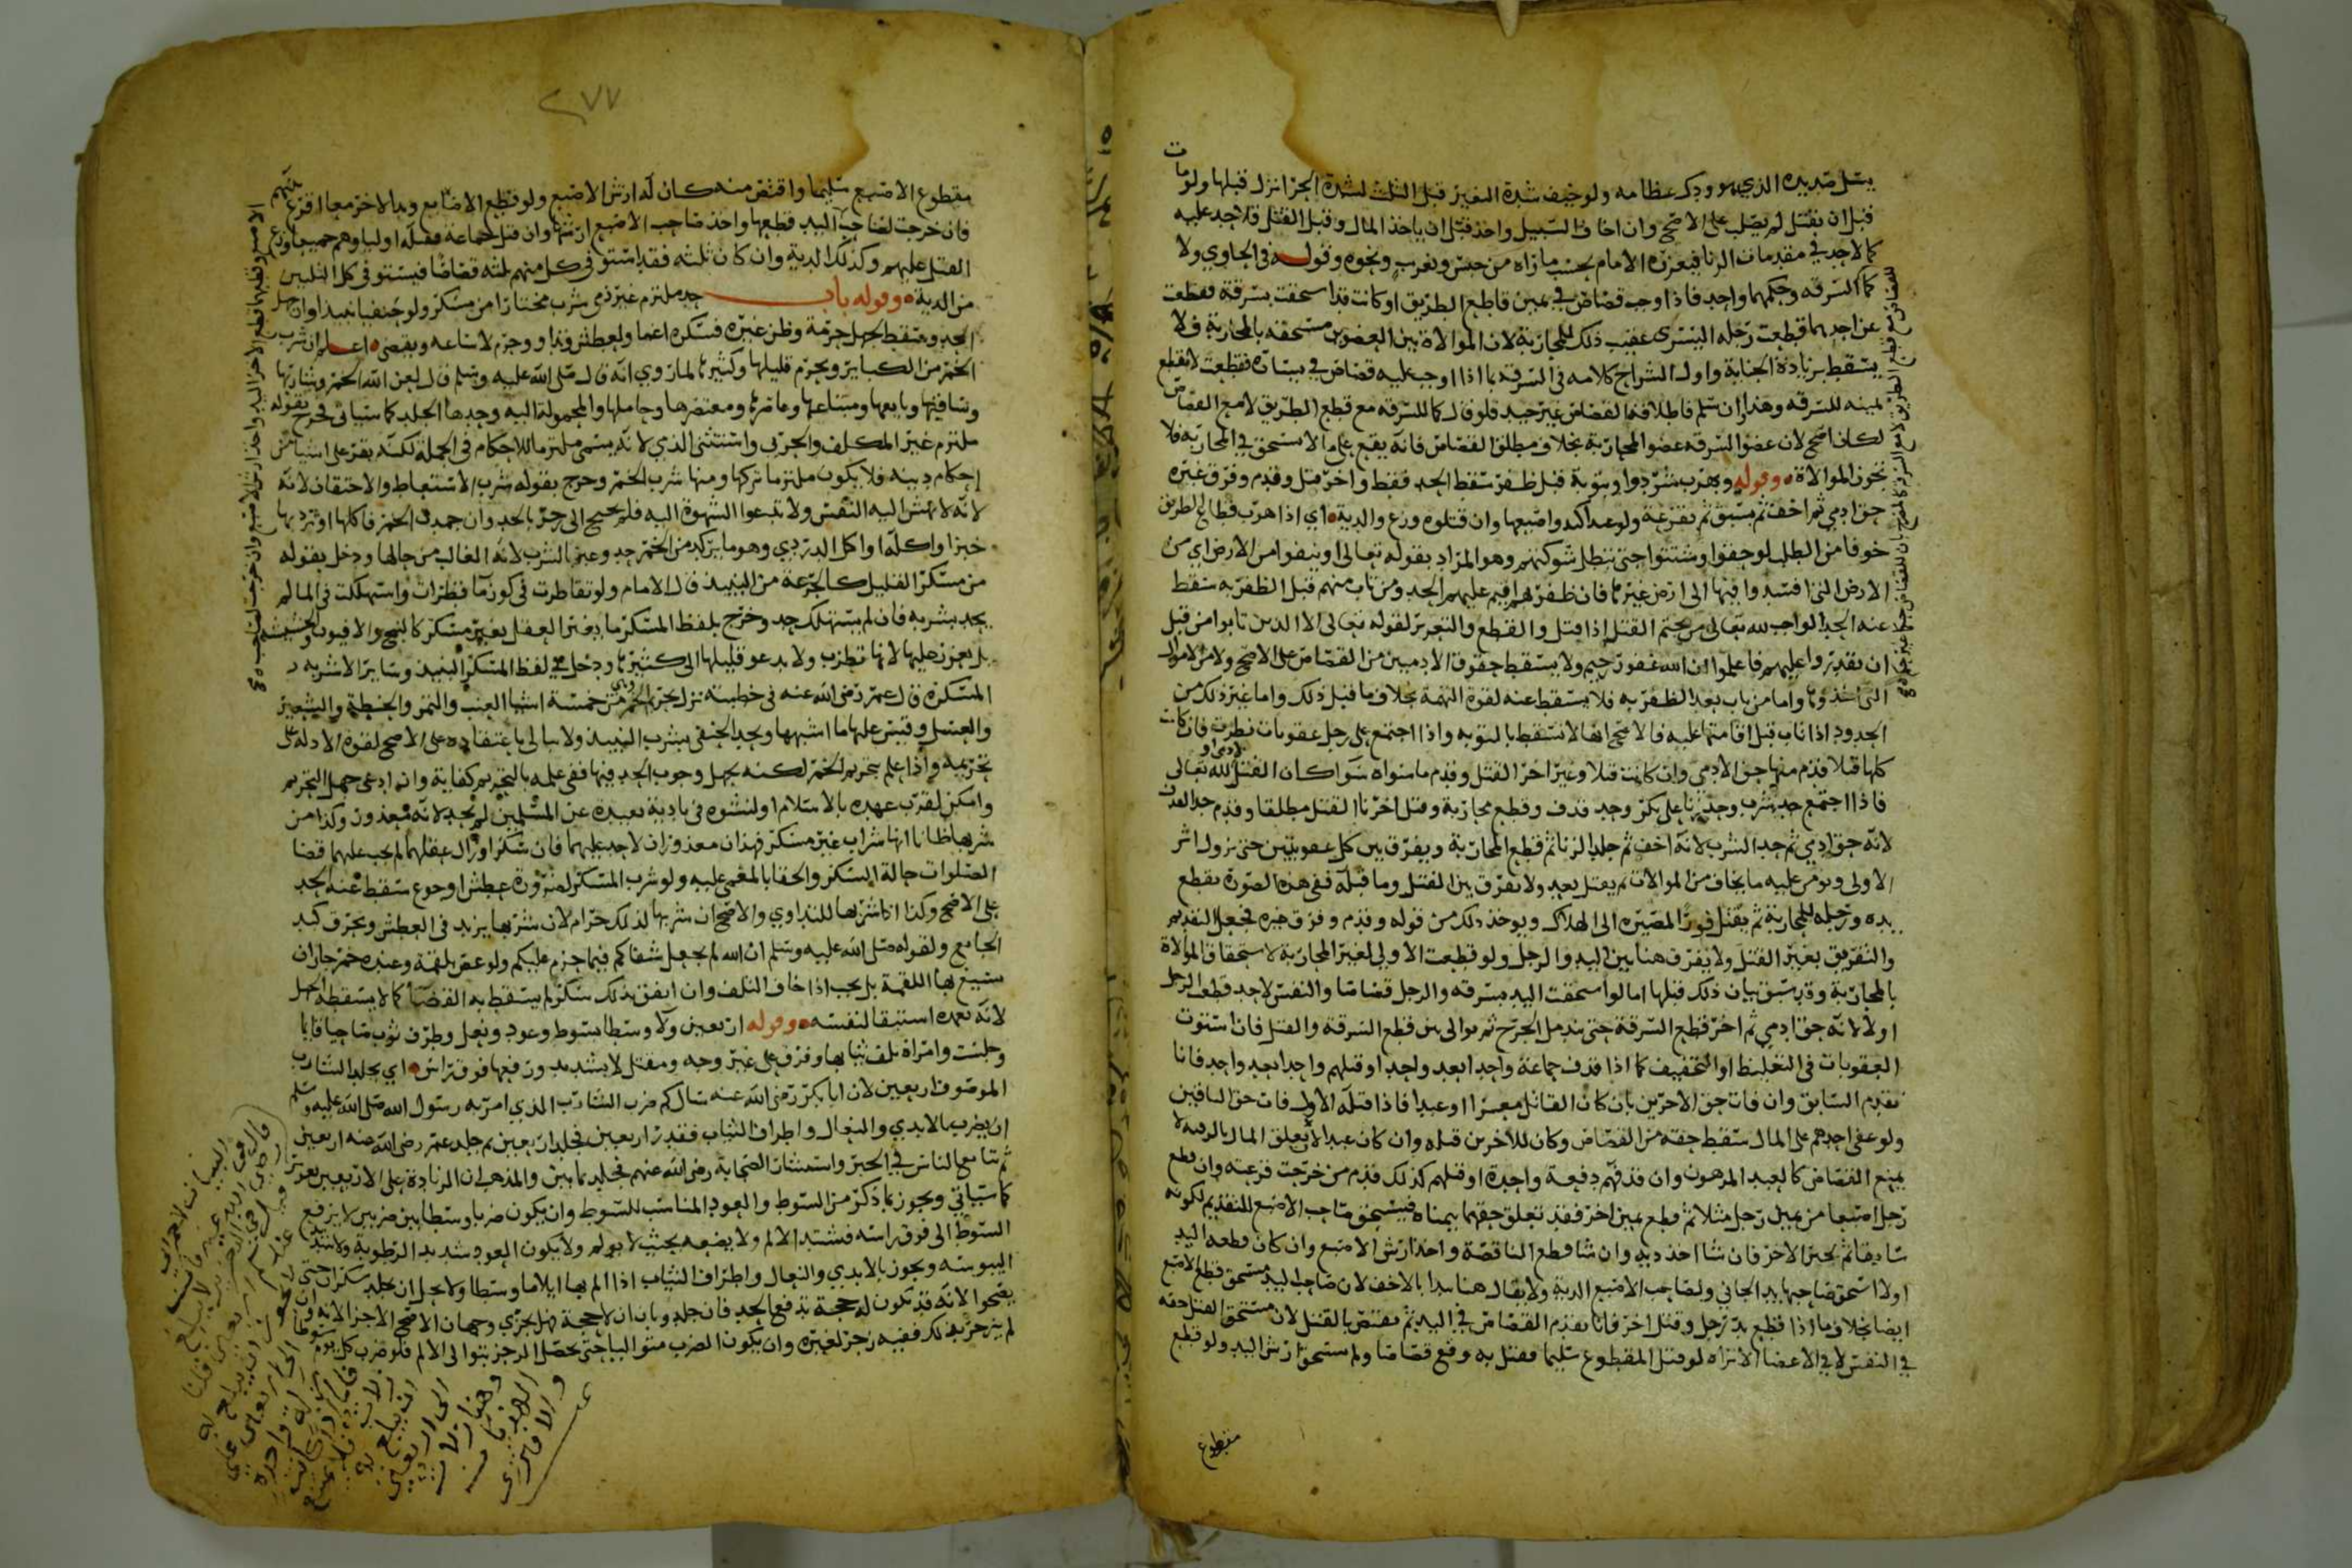 يسيل صديده الذي هو ودك عظامه ولو خيف شدة التغير قبل الثلث لشدة الحر انزل قبلها ولو مات
قبل ان يقتل لم يصلب على الاصح وان اخاف السبيل واخذ قبل ان ياخذ المال وقبل القتل فلا حد عليه
كما لا حد في مقدمات الزنا فيعزره الامام بحسب ما راه من حبس وتغريب ونحوه وقوله في الحاوي ولا
كما السرقه وحكمهما واحد فاذا وجب قصاص في يمين قاطع الطريق او كانت قد استحقت بسرقة فقطعت
عن احدهما قطعت رجله اليسرى عقيب ذلك للمحاربة لان الموالاة بين العضوين مستحقه بالمحاربة فلا
يسقط بزيادة الجناية واول الشراح كلامه في السرقه بما اذا وجب عليه قصاص في يساره فقطعت لا تقطع
يمينه للسرقه وهذا ان سلم فاطلاقه القصاص غير جيد فلو قال كما للسرقه مع قطع الطريق لا مع القصاص
لكان اصح لان عضو السرقه عضو المحاربة بخلاف مطلق القصاص فانه يقع على ما لا يستحق في المحاربه فلا
تجوز الموالاة وقوله وبهرب شردوا وبتوبة قبل ظفر سقط الحد فقط واخر قتل وقدم وفرق غيره
حق ادمي ثم اخف ثم سبق ثم بقرعة ولو عبدا كيد واصبعها وان قتلوه وزع والدية اي اذا هرب قطاع الطريق
خوفا من الطلب لوحقوا وشتتوا حتى تبطل شوكتهم وهو المراد بقوله تعالى او ينفوا من الارض اي من
الارض التي افسدوا فيها الى ارض غيرها فان ظفر بهم اقيم عليهم الحد ومن تاب منهم قبل الظفر به سقط
عنه الحد الواجب لله تعالى من تحتم القتل اذا قتل والقطع والتعزير لقوله تعالى الا الذين تابوا من قبل
ان تقدروا عليهم فاعلموا ان الله غفور رحيم ولا يسقط حقوق الادميين من القصاص على الاصح ولا من الاموال
التي اخذوها واما من تاب بعد الظفر به فلا يسقط عنه لقوة التهمة بخلاف ما قبل ذلك واما غير ذلك من
الحدود اذا تاب قبل اقامتها عليه فالاصح انها لا تسقط بالتوبه واذا اجتمع على رجل عقوبات نظرت فان كانت
كلها قتلا قدم منها حق الادمي وان كانت قتلا وغيره اخر القتل وقدم ما سواه سوا كان القتل لادمي او لله تعالى
فاذا اجتمع حد شرب وحد زنا على بكر وحد قذف وقطع محاربة وقتل اخرنا القتل مطلقا وقدم حد القذف
لانه حق ادمي ثم حد الشرب لانه اخف ثم جلد الزنا ثم قطع المحاربة ويفرق بين كل عقوبتين حتى يزول اثر
الاولى ويومن عليه ما يخاف من الموالات ثم يقتل بعد ولا يفرق بين القتل وما قبله ففي هذه الصورة تقطع
يده ورجله للمحاربة ثم يقتل فورا لمصيره الى الهلاك ويوخذ ذلك من قوله وقدم وفرق غيره فجعل التقديم
والتفريق بغير القتل ولا يفرق هنا بين اليد والرجل ولو قطعت الاولى لغير المحاربة لاستحقاق الموالاة
بالمحاربة وقد سبق بيان ذلك قبلها اما لو استحقت اليد بسرقه والرجل قصاصا والنفس لاحد قطعت الرجل
اولا لانه حق ادمي ثم اخر قطع السرقة حتى يندمل الجرح ثم يوالي بين قطع السرقة والقتل فان استوت
العقوبات في التغليظ او التخفيف كما اذا قذف جماعة واحدا بعد واحد او قتلهم واحدا بعد واحد فانا
نقدم السابق وان فات حق الاخرين بان كان القاتل معسرا او عبدا فاذا قتله الاول فات حق الباقين
ولو عفى احدهم على المال سقط حقه من القصاص وكان للاخرين قتله وان كان عبدا لان تعلق المال بالرقبه لا
يمنع القصاص كالعبد المرهون وان قذفهم دفعة واحدة او قتلهم كذلك قدم من خرجت قرعته وان قطع
رجل اصبعا من يمين رجل مثلا ثم قطع يمين اخر فقد تعلق حقهما بيمناه فيستحق صاحب الاصبع للتقديم لكونه
سابقا ثم يخير الاخر فان شا اخذ دية وان شا قطع الناقصة واخذ ارش الاصبع وان كان قطعه اليد
اولا استحق صاحبها يد الجاني ولصاحب الاصبع الدية ولا يقال هنا يبدا بالاخف لان صاحب اليد مستحق قطع الاصبع
ايضا بخلاف ما اذا قطع يد رجل وقتل اخر فانا نقدم القصاص في اليد ثم يقتص بالقتل لان مستحق القتل حقه
في النفس لا في الاعضا الا تراه لو قتل المقطوع سليما فقتل به وقع قصاصا ولم يستحق ارش اليد ولو قطع
مقطوع
٢٧٧
مقطوع الاصبع سليما واقتص منه كان له ارش الاصبع ولو قطع الاصابع ويدا لاخر معا اقرع بينهم
فان خرجت لصاحب اليد قطعها واخذ صاحب الاصبع ارشها وان قتل جماعة فقتله اولياوهم جميعا وزع
القتل عليهم وكذلك الدية وان كان ثلثه فقد استوفى كل منهم ثلثه قصاصا فيستوفي كل الثلثين
من الدية وقوله باب حد ملتزم غير ذمي شرب مختارا من مسكر ولو حنفيا نبيذا وان جهل
الحد ويسقط بجهل حرمة وظن غيره فسكره اغما ولعطش وتداو وحرم لا ساعه ويقضى اعلم ان شرب
الخمر من الكباير ويحرم قليلها وكثيرها لما روي انه قال صلى الله عليه وسلم قال لعن الله الخمر وشاربها
وساقيها وبايعها ومبتاعها وعاصرها ومعتصرها وحاملها والمحمولة اليه وحدها الجلد كما سياتي فخرج بقوله
ملتزم غير المكلف والحربي واستثنى الذمي لانه يسمى ملتزما للاحكام في الجملة لكنه يقر على اشيا من
احكام دينه فلا يكون ملتزما تركها ومنها شرب الخمر وخرج بقوله شرب الاستعاط والاحتقان لانه
لانه لا تهش اليه النفس ولا تدعوا الشهوة اليه فلم يحتج الى زجر بالحد وان جمد في الخمر فاكلها او ثرد بها
خبزا واكله او اكل الدردي وهو ما يركد من الخمر حد وعبر بالشرب لانه الغالب من حالها ودخل بقوله
من مسكر القليل كالجرعة من النبيذ قال الامام ولو تقاطرت في كوز ما قطرات واستهلكت في الما لم
يحد بشربه فان لم يستهلك حد وخرج بلفظ المسكر ما يغير العقل بغير مسكر كالبنج والافيون والحشيشه
بل يعزر عليها لانها تطرب ولا يدعو قليلها الى كثيرها ودخل في لفظ المسكر النبيذ وساير الاشربه
المسكرة قال عمر رضى الله عنه في خطبته نزل تحريم الخمر وهي من خمسة اشيا العنب والتمر والحنطة والشعير
والعسل وقيس عليها ما اشبهها ويحد الحنفي بشرب النبيذ ولا يبالى باعتقاده على الاصح لقوة الادله على
تحريمه واذا علم بتحريم الخمر لكنه يجهل وجوب الحد فيها ففي علمه بالتحريم كفاية وان ادعى جهل التحريم
وامكن لقرب عهده بالاسلام او لنشوه في بادية بعيدة عن المسلمين لم يحد لانه معذور وكذا من
شربها ظانا انها شراب غير مسكر فهذان معذوران لا حد عليهما فان سكرا وزال عقلهما لم يجب عليهما قضا
الصلوات حالة السكر والحقا بالمغمى عليه ولو شرب المسكر لضرورة عطش او جوع سقط عنه الحد
على الاصح وكذا اذا شربها للتداوي والاصح ان شربها لذلك حرام لان شربها يزيد في العطش ويحرق كبد
الجايع ولقوله صلى الله عليه وسلم ان الله لم يجعل شفاكم فيما حرم عليكم ولو غص بلقمة وعنده خمر جاز ان
يسيغ بها اللقمة بل يجب اذا خاف التلف وان اتفق بذلك سكر لم يسقط به القضا كما لا يسقطه الجهل
لانه تعمده استبقا لنفسه وقوله اربعين ولا وسطا بسوط وعود ونعل وطرف ثوب صاحيا قايما
وجلست وامراة تلف ثيابها وفرق على غير وجه ومقتل لا بشد يد ورفعها فوق راس اي يجلد الشارب
الموصوف اربعين لان ابا بكر رضى الله عنه سال كم ضرب الشارب الذي امر به رسول الله صلى الله عليه وسلم
ان يضرب بالايدي والنعال واطراف الثياب فقدر اربعين فجلد اربعين ثم جلد عمر رضى الله عنه اربعين
ثم تتابع الناس في الخمر واستشار الصحابة رضى الله عنهم فجلد ثمانين والمذهب ان الزيادة على الاربعين تعزير
كما سياتي ويجوز بما ذكر من السوط والعود المناسب للسوط وان يكون ضربا وسطا بين ضربين لا يرفع
السوط الى فوق راسه فيشتد الالم ولا يضعه بحيث لا يولم ولا يكون العود شديد الرطوبة ولا شديد
اليبوسه ويجوز بالايدي والنعال واطراف الثياب اذا الم بها ايلاما وسطا ولا يحل ان يجلد سكران حتى
يصحوا لانه قد تكون له حجة تدفع الحد فان جلد وبان ان لا حجة فهل يجزي وجهان الاصح الاجزا لانه وان
لم ينزجر بذلك ففيه زجر لغيره وان يكون الضرب متواليا حتى يحصل الزجر بتوالى الالم فلو ضرب كل يوم سوطا